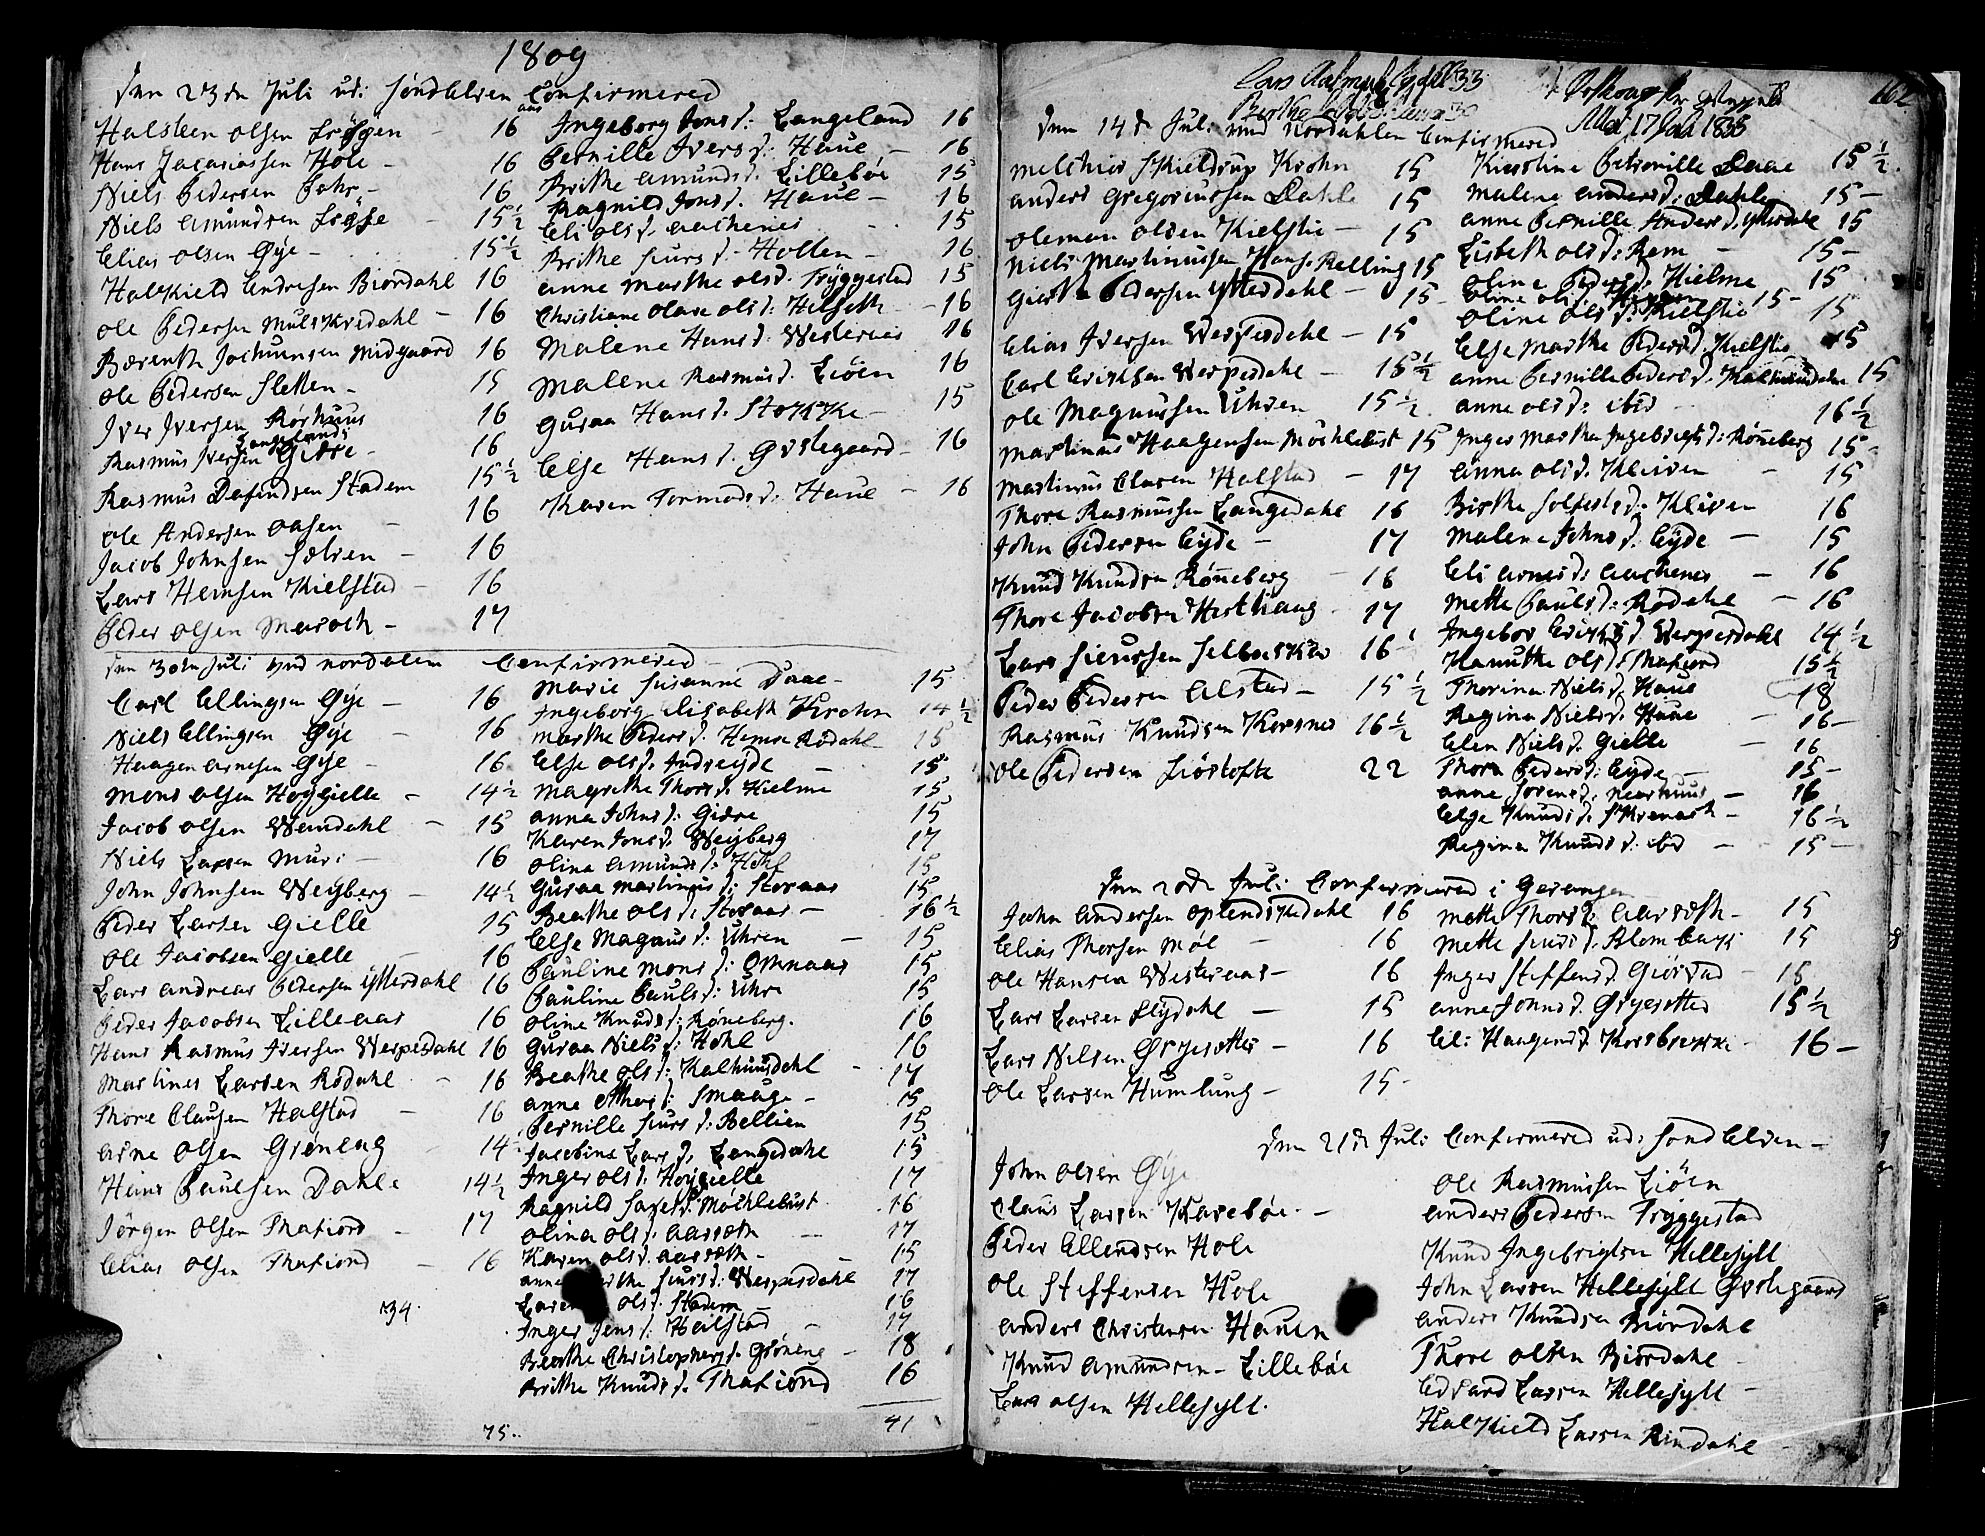 1809
den 23de Juli ud: søndelven Confirmered
Halsteen olsen - 16
Hans Zacariassen Hole - 16
Niels Pedersen - 16
Niels Amundsen - 15½
Elias olsen Øye - 15½
Halvkield Endresen Biørdahl 16
ole Pedersen Mulskredahl - 16
Berenth Jochumsen Midgaard 16
ole Pedersen Sletten - 15
Iver Iversen Rørhuus 16
Langelands
Rasmus Iversen Giære - 16
Rasmus Stadem 15½
ole Andersen Aasen - 16
Jacob Johnsen - 16
Lars Kielstad - 16
Peder olsen Maroch - 17
Ingeborg Jons d: Langeland 16
Pernille Ivers d: Haue - 16
Brithe Amunds d: Lillebøe 15
Ragnild Jons d. Haue - 16
Eli ols d. Aachenes 15
Brithe Siurs d. Holten - 16
anne Marthe ols d. Tryggestad 15
Christiane Olave ols d: Helseth - 16
Malene Hans d. Westeraas 16
Malene Rasmus d. Liøen 16
Guraa Hans d. Stokke - 15
Else Hans d. Ørstegaard - 16
Karen Tormods d. Haue - 16
den 30de Juli ved nordalen Confirmered -
Carl Ellingsen Øye - 16
Niels Ellingsen Øye - 16
Haagen Arnesen Øye - 16
Mons olsen Høygielle - 14½
Jacob olsen Wemdahl - 15
Niels Larsen Muri - 16
John Johnsen Weiberg - 14½
Peder Larsen Gielle 15
ole Jacobsen Gielle - 16
Lars Andreas Pedersen ytterdahl 16
Peder Jacobsen Lilleaas 16
Hans Rasmus Iversen Werpesdahl 16
Martines Larsen Rødahl - 16
Thore Clausen Halstad - 16
Arne olsen Grøneng 14
Hans Paulsen Dahle 14½
Jørgen olsen Thafiord - 17
Elias olsen Thafiord - 16
34.
Marie Susanne Daae - 15
Ingeborg Elisabeth Krohn 14½
Marthe Peders d. Rødahl 15
Else ols d. Indreeide - 15
Magrethe Thors d. Hielme 15
Anna Johns d: Giære 15
Karen Jons d. Weyberg 17
Olina Amunds d: Hohl 15
Guraa Martinus d: Storaas 15
Beathe ols d: Storaas - 16½
Else Magnus d: Uhren - 15
Pauline Mons d: Omnaas 15
Pauline Pauls d: Uhre 15
Oline Knuds d: Røneberg. 16
Guraa Niels d: Hohl 16
Beathe ols d: Kalhuusdahl - 17
anne d: Smaage - 15
Pernille Siurs d: Bellien 15
Jacobine Lars d. Langedahl 15
Inger ols d: Høygielle 17
Ragnild d. Møchlebust 16
Olina ols d: Aarseth 17
Karen ols d. Aarseth - 15
anne Siurs d: Werpesdahl 17
ols d: Stadem 16
Inger Jens d: Halstad - 17
Beathe Christophers d. Grøneng - 18
Brithe Knuds d. Thafiord 16
41
75.
162
Mai 17 Juli 1835
den 14de Juli ved Nordahlen Confirmered
Melchior Schieldrup Krohn 15
Anders Gregoriussen Dahle 15
Oleman olsen Kielstie - 15
Niels Martinussen Hans. Relling 15
Giert Pedersen ytterdahl - 15
Elias Iversen Werpesdahl - 15
Carl Erichsen Werpesdahl - 15½
ole Magnussen Uhren 15½
Martinus Haagensen Møchlebust 15
Martinus Clasen Halstad - 17
Thore Rasmussen Langedahl 16
John Pedersen Eyde - 17
Knud Knudsen Røneberg - 16
Thore Jacobsen Hesthaug 17
Lars Siurssen Selboeskor 16
Peder Pedersen Alstad - 15½
Rasmus Knudsen Korsnes 16½
ole Pedersen 22
Kierstine Petronille Daae 15½
Malene Anders d. Dahle 15 -
anne Pernille Anders d. ytterdahl 15
Lisbeth ols d: Rem 15 -
oline Peders d: Hielme 15
oline ols d: 15 -
Oline ols d: Kielstie 15
Else Marthe Peders d. Kielstie 15
anne Pernille Peders d. Kalhuusdahl 15
anne ols d: ibid 16½
Inger Marthe Ingebrigts d: Røneberg 15 -
Anna ols d. Kleiven - 15
Birthe d: Kleiven 16
Malene Johns d. Eyde - 15
Eli Arnes d: Aachenes - 16
Mette Pauls d: Rødahl - 16
Ingebor Erichs d. Werpesdahl 14½
Hanuthe ols d: Thafiord 15½
Thorina Niels d. Haue 18
Regina Niels d. Haue - 16 -
Elen Niels d. Gielle - 16
Thora Peders d: Eyde - 15 -
anne d. - 16
Else Knuds d. - 16½
Regina Knuds d. ibd - 15 -
den 20de Juli Confirmered i Geranger
John Andersen Oplendskedahl 16
Elias Thorsen Møl - 16
ole Hansen Westeraas - 16
Lars Larsen Flydahl - 15
Lars Nilsen Grysetter - 16
ole Larsen Humlung - 15 -
Mette Thors d: Aarseth - 15
Mette Siurs d. 15
Inger Steffens d. Giørstad 15
anne Johns d. Grysetter 15½
Eli: Haagens d. 16 -
den 21de Juli Confirmered ud: søndelven -
John olsen Øye
Claus Larsen -
Peder Ellendsen Hole
ole Steffensen Hole
Anders Christensen Hauen
Knud Amundsen - Lillebøe
Lars olsen Hellesylt.
ole Rasmussen Liøen
Anders Pedersen Tryggestad
Knud Ingebrigtsen Hellesylt
John Larsen Hellesylt Ørstegaard
Anders Knudsen Biørdahl
Thore olsen Biørdahl -
Edvard Larsen Hellesylt -
Halvkield Larsen Rindahl -